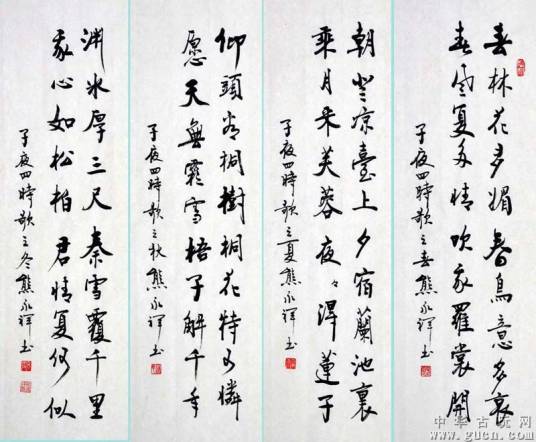 春林花多媚春鳥意多哀
春風复多情吹我羅裳開
子夜四時歌之春熊永祥书
朝登凉臺上夕宿蘭池裏
乘月采芙蓉夜々得蓮子
子夜四時歌之夏熊永祥书
仰頭看桐樹桐花特可憐
愿天無霜雪梧子解千年
子夜四時歌之秋熊永祥书
渊冰厚三尺素雪覆千里
我心如松柏君情复何似
子夜四時歌之冬熊永祥书
中华古玩网
www.gucn.com